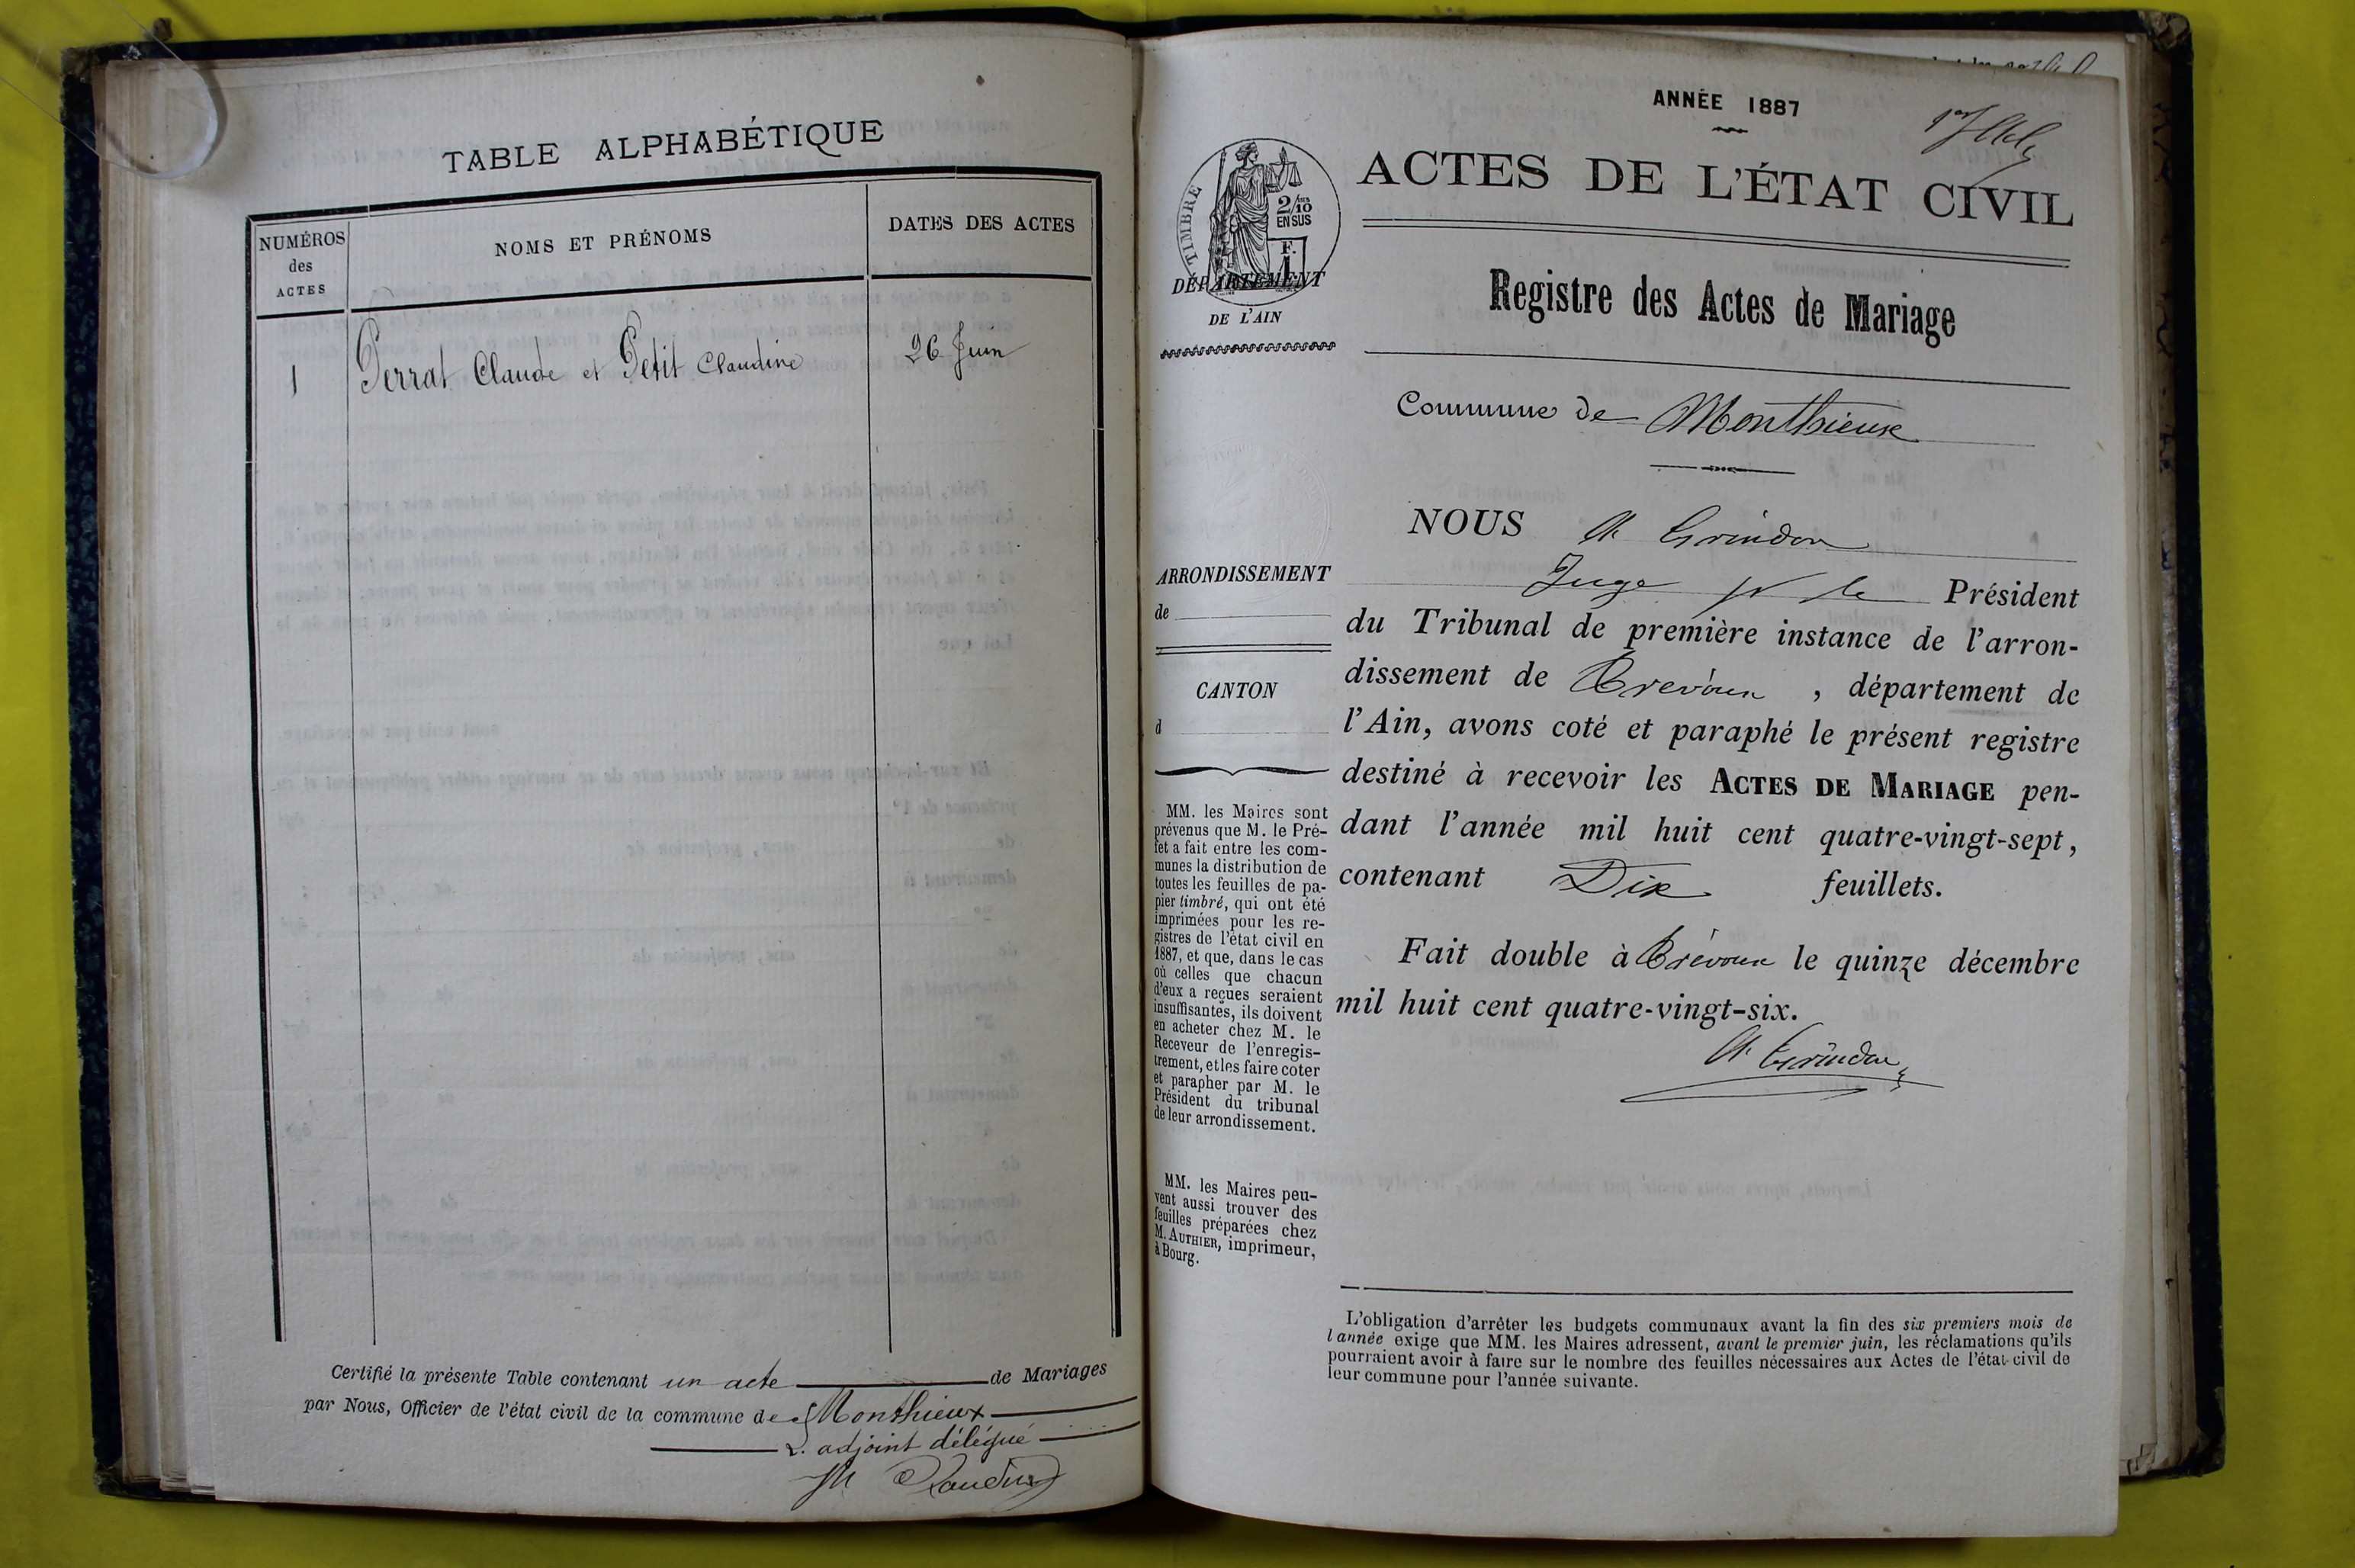 TABLE ALPHABÉTIQUE
NUMÉROS
des
ACTES
NOMS ET PRÉNOMS
DATES DES ACTES
1
Perrat Claude et Petit Claudine
26 Juin
Certifié la présente Table contenant un acte de Mariages
par Nous, Officier de l'état civil de la commune de Monthieux
L. adjoint délégué
ANNÉE 1887
ACTES DE L'ÉTAT CIVIL
TIMBRE
2/10
EN SUS
F.
1
DÉPARTEMENT
DE L'AIN
Registre des Actes de Mariage
Commune de Monthieux
NOUS Grindon
Juge pr le Président
du Tribunal de première instance de l'arron-
dissement de Trévoux, département de
l'Ain, avons coté et paraphé le présent registre
destiné à recevoir les ACTES DE MARIAGE pen-
dant l'année mil huit cent quatre-vingt-sept,
contenant Dix feuillets.
Fait double à Trévoux le quinze décembre
mil huit cent quatre-vingt-six.
Grindon
ARRONDISSEMENT
de
CANTON
d
MM. les Maires sont
prévenus que M. le Pré-
fet a fait entre les com-
munes la distribution de
toutes les feuilles de pa-
pier timbré, qui ont été
imprimées pour les re-
gistres de l'état civil en
1887, et que, dans le cas
où celles que chacun
d'eux a reçues seraient
insuffisantes, ils doivent
en acheter chez M. le
Receveur de l'enregis-
trement, et les faire coter
et parapher par M. le
Président du tribunal
de leur arrondissement.
MM. les Maires peu-
vent aussi trouver des
feuilles préparées chez
M. AUTHIER, imprimeur,
à Bourg.
L'obligation d'arrêter les budgets communaux avant la fin des six premiers mois de
l'année exige que MM. les Maires adressent, avant le premier juin, les réclamations qu'ils
pourraient avoir à faire sur le nombre des feuilles nécessaires aux Actes de l'état-civil de
leur commune pour l'année suivante.